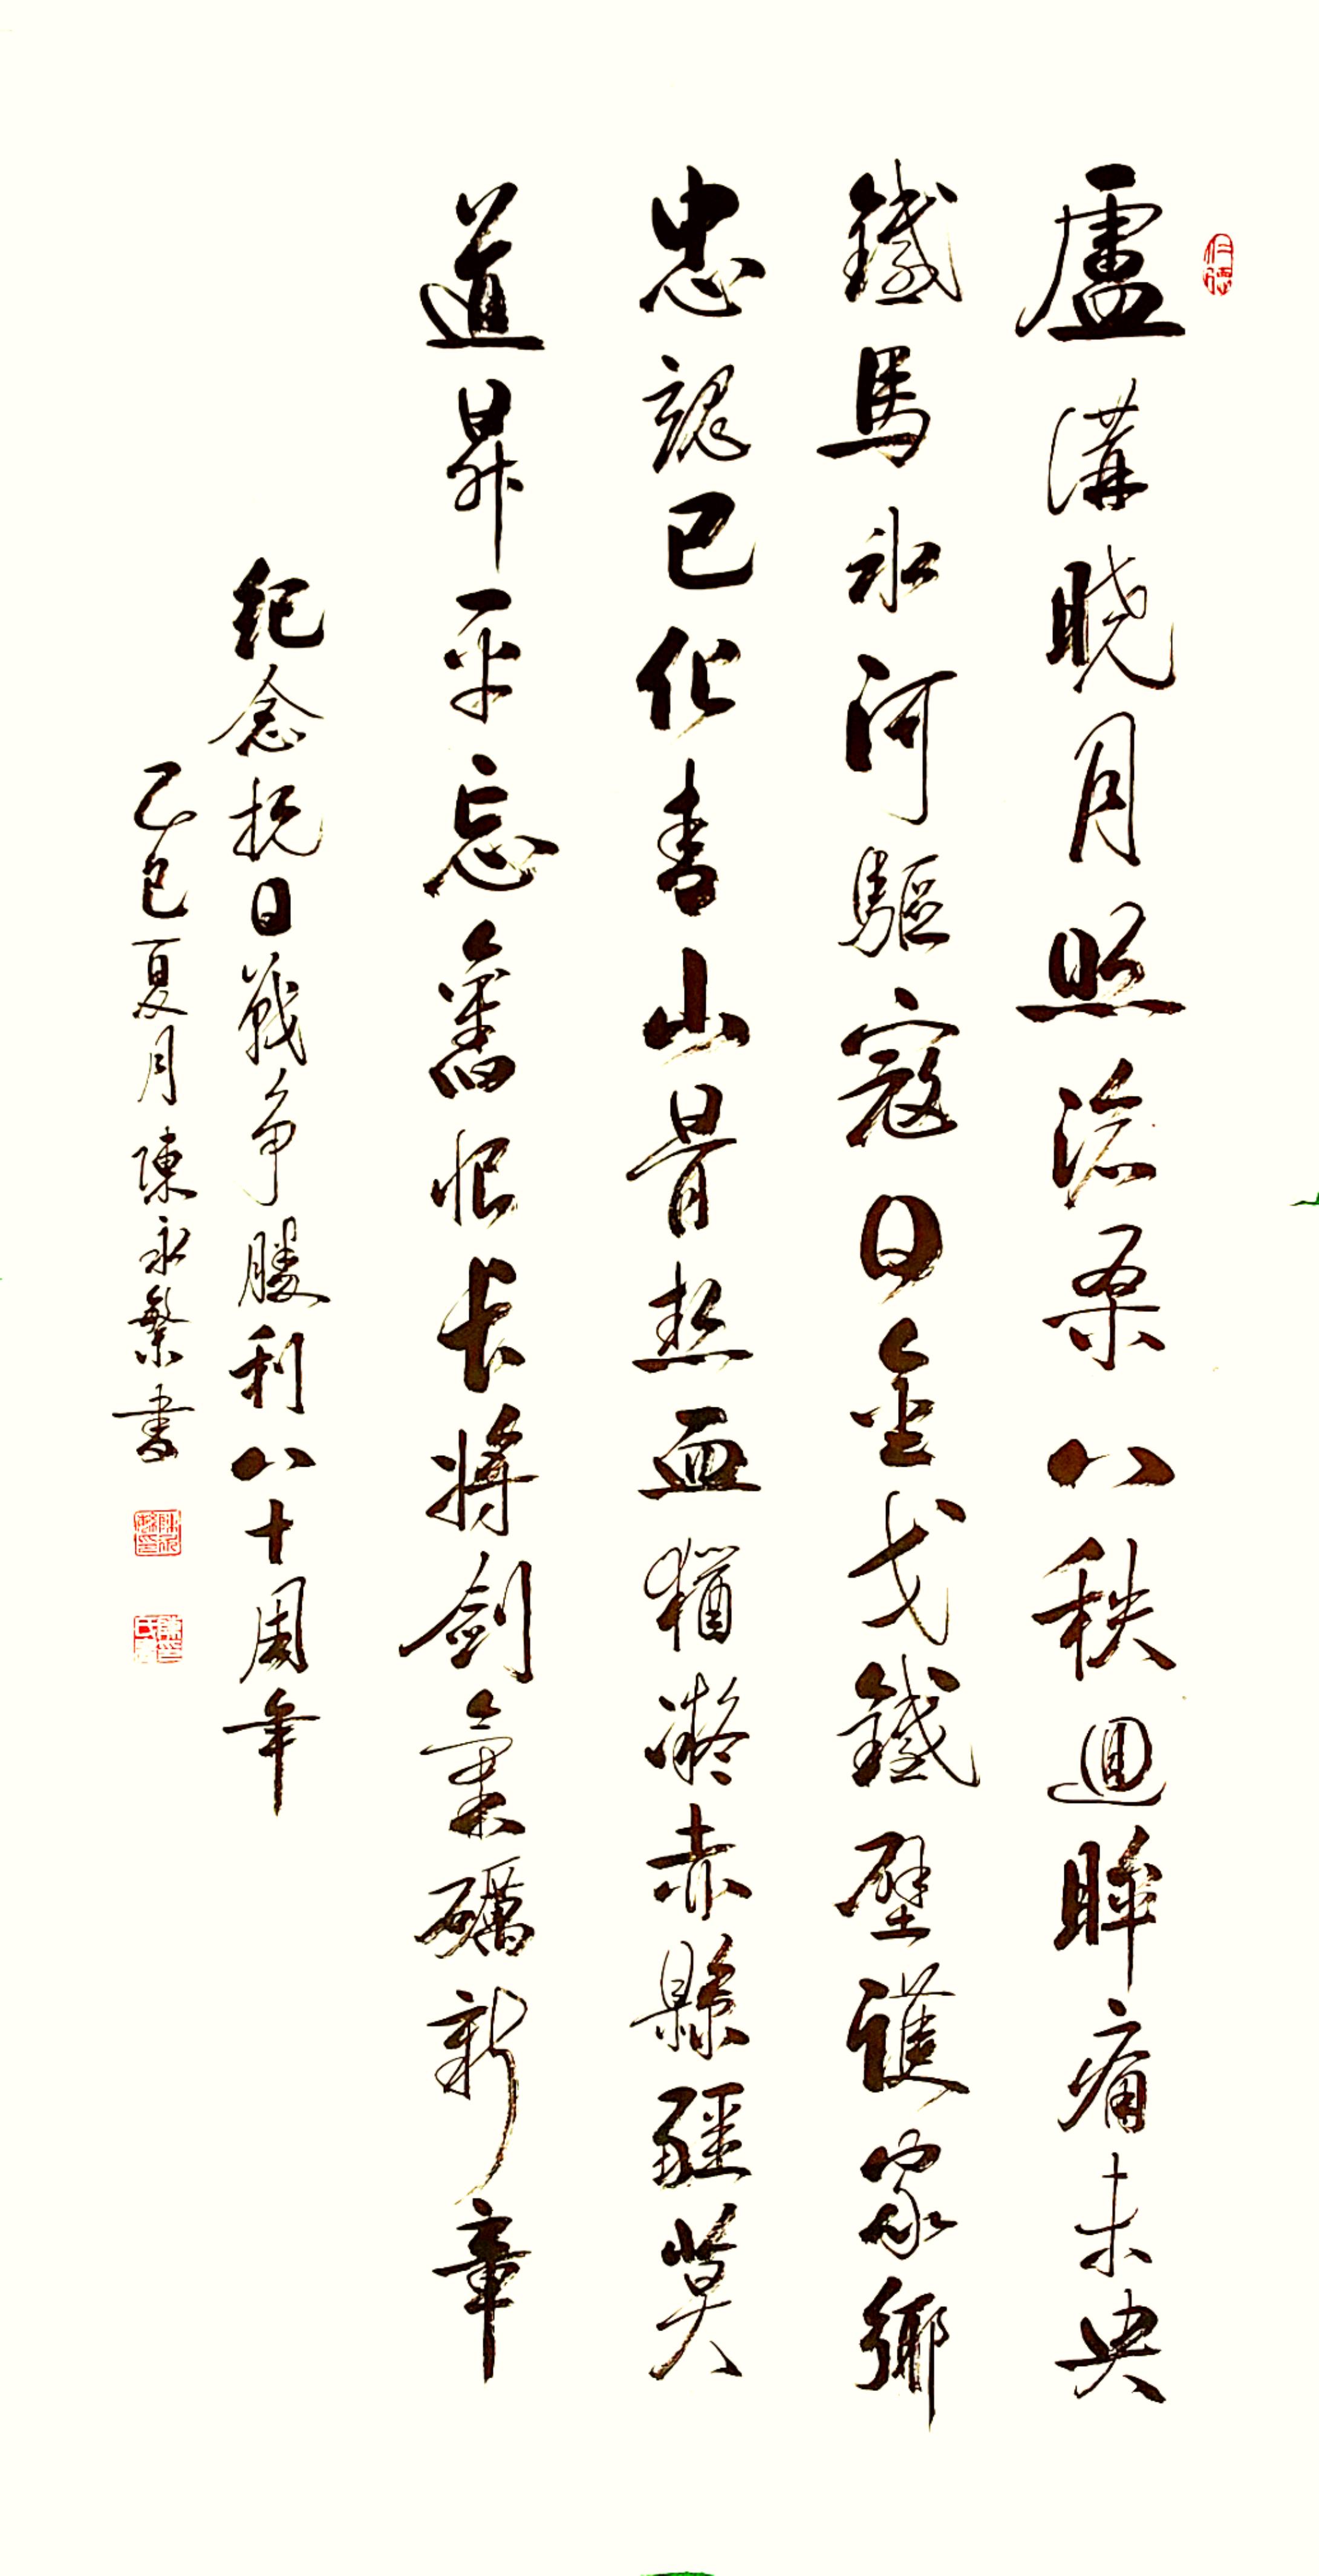 盧溝曉月照滄桑八秩迴眸痛未央
鐵馬冰河驅寇日金戈鐵壁護家鄉
忠魂已化青山骨热血猶凝赤縣疆莫
道昇平忘舊恨长將劍氣礪新章
纪念抗日戰争勝利八十周年
乙巳夏月陳永繁書